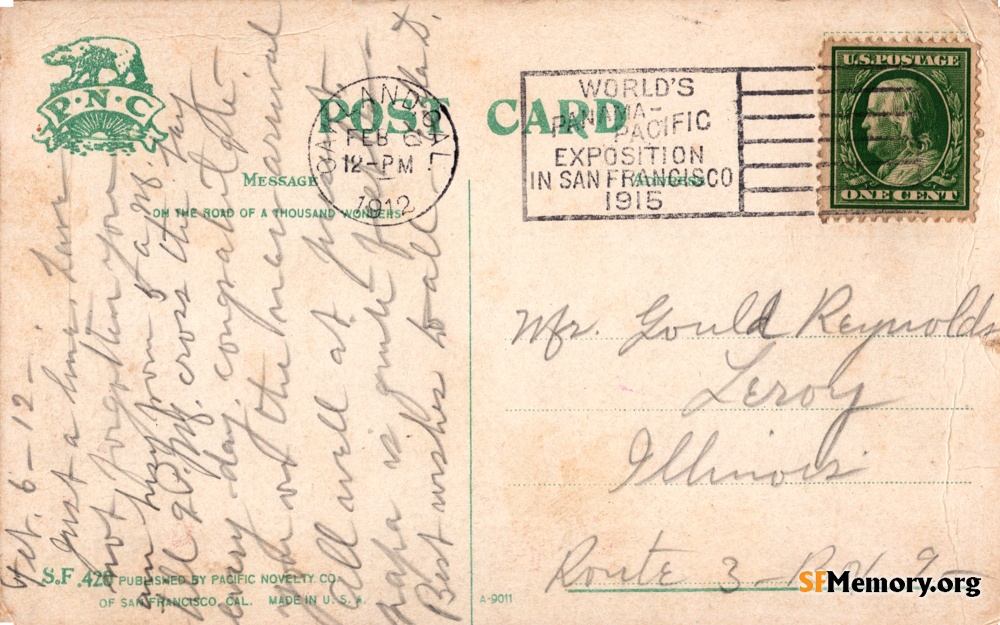 P·N·C
POST CARD
MESSAGE
ADDRESS
ON THE ROAD OF A THOUSAND WONDERS
OAKLAND, CAL.
FEB 6
12-PM
1912
WORLD'S
PANAMA-
PACIFIC
EXPOSITION
IN SAN FRANCISCO
1915
U.S. POSTAGE
ONE CENT
Feb. 6-12-
Just a line. Have
not forgotten you
am busy from 5 a.m.
till 9 P.M. cross the bay
every day. congratulate
you on the new arrival
All well at present
papa is quite feeble
Best wishes to all
Mr. Gould Reynolds
Leroy
Illinois
Route 3
S.F. 420 PUBLISHED BY PACIFIC NOVELTY CO.
OF SAN FRANCISCO, CAL. MADE IN U.S.A.
A-9011
SFMemory.org